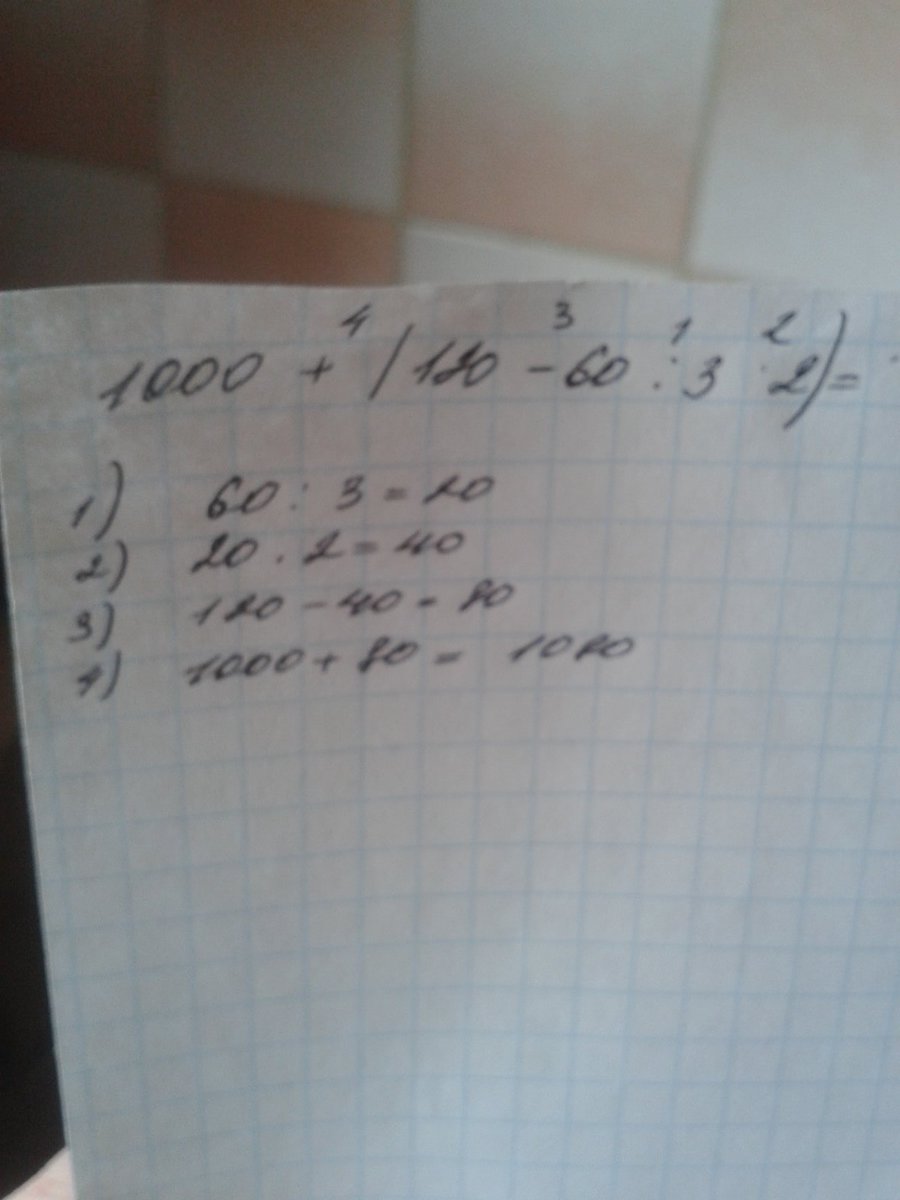 4 3 1 2
1000 + (120 - 60 : 3 · 2) =
1) 60 : 3 = 20
2) 20 · 2 = 40
3) 120 - 40 = 80
4) 1000 + 80 = 1080